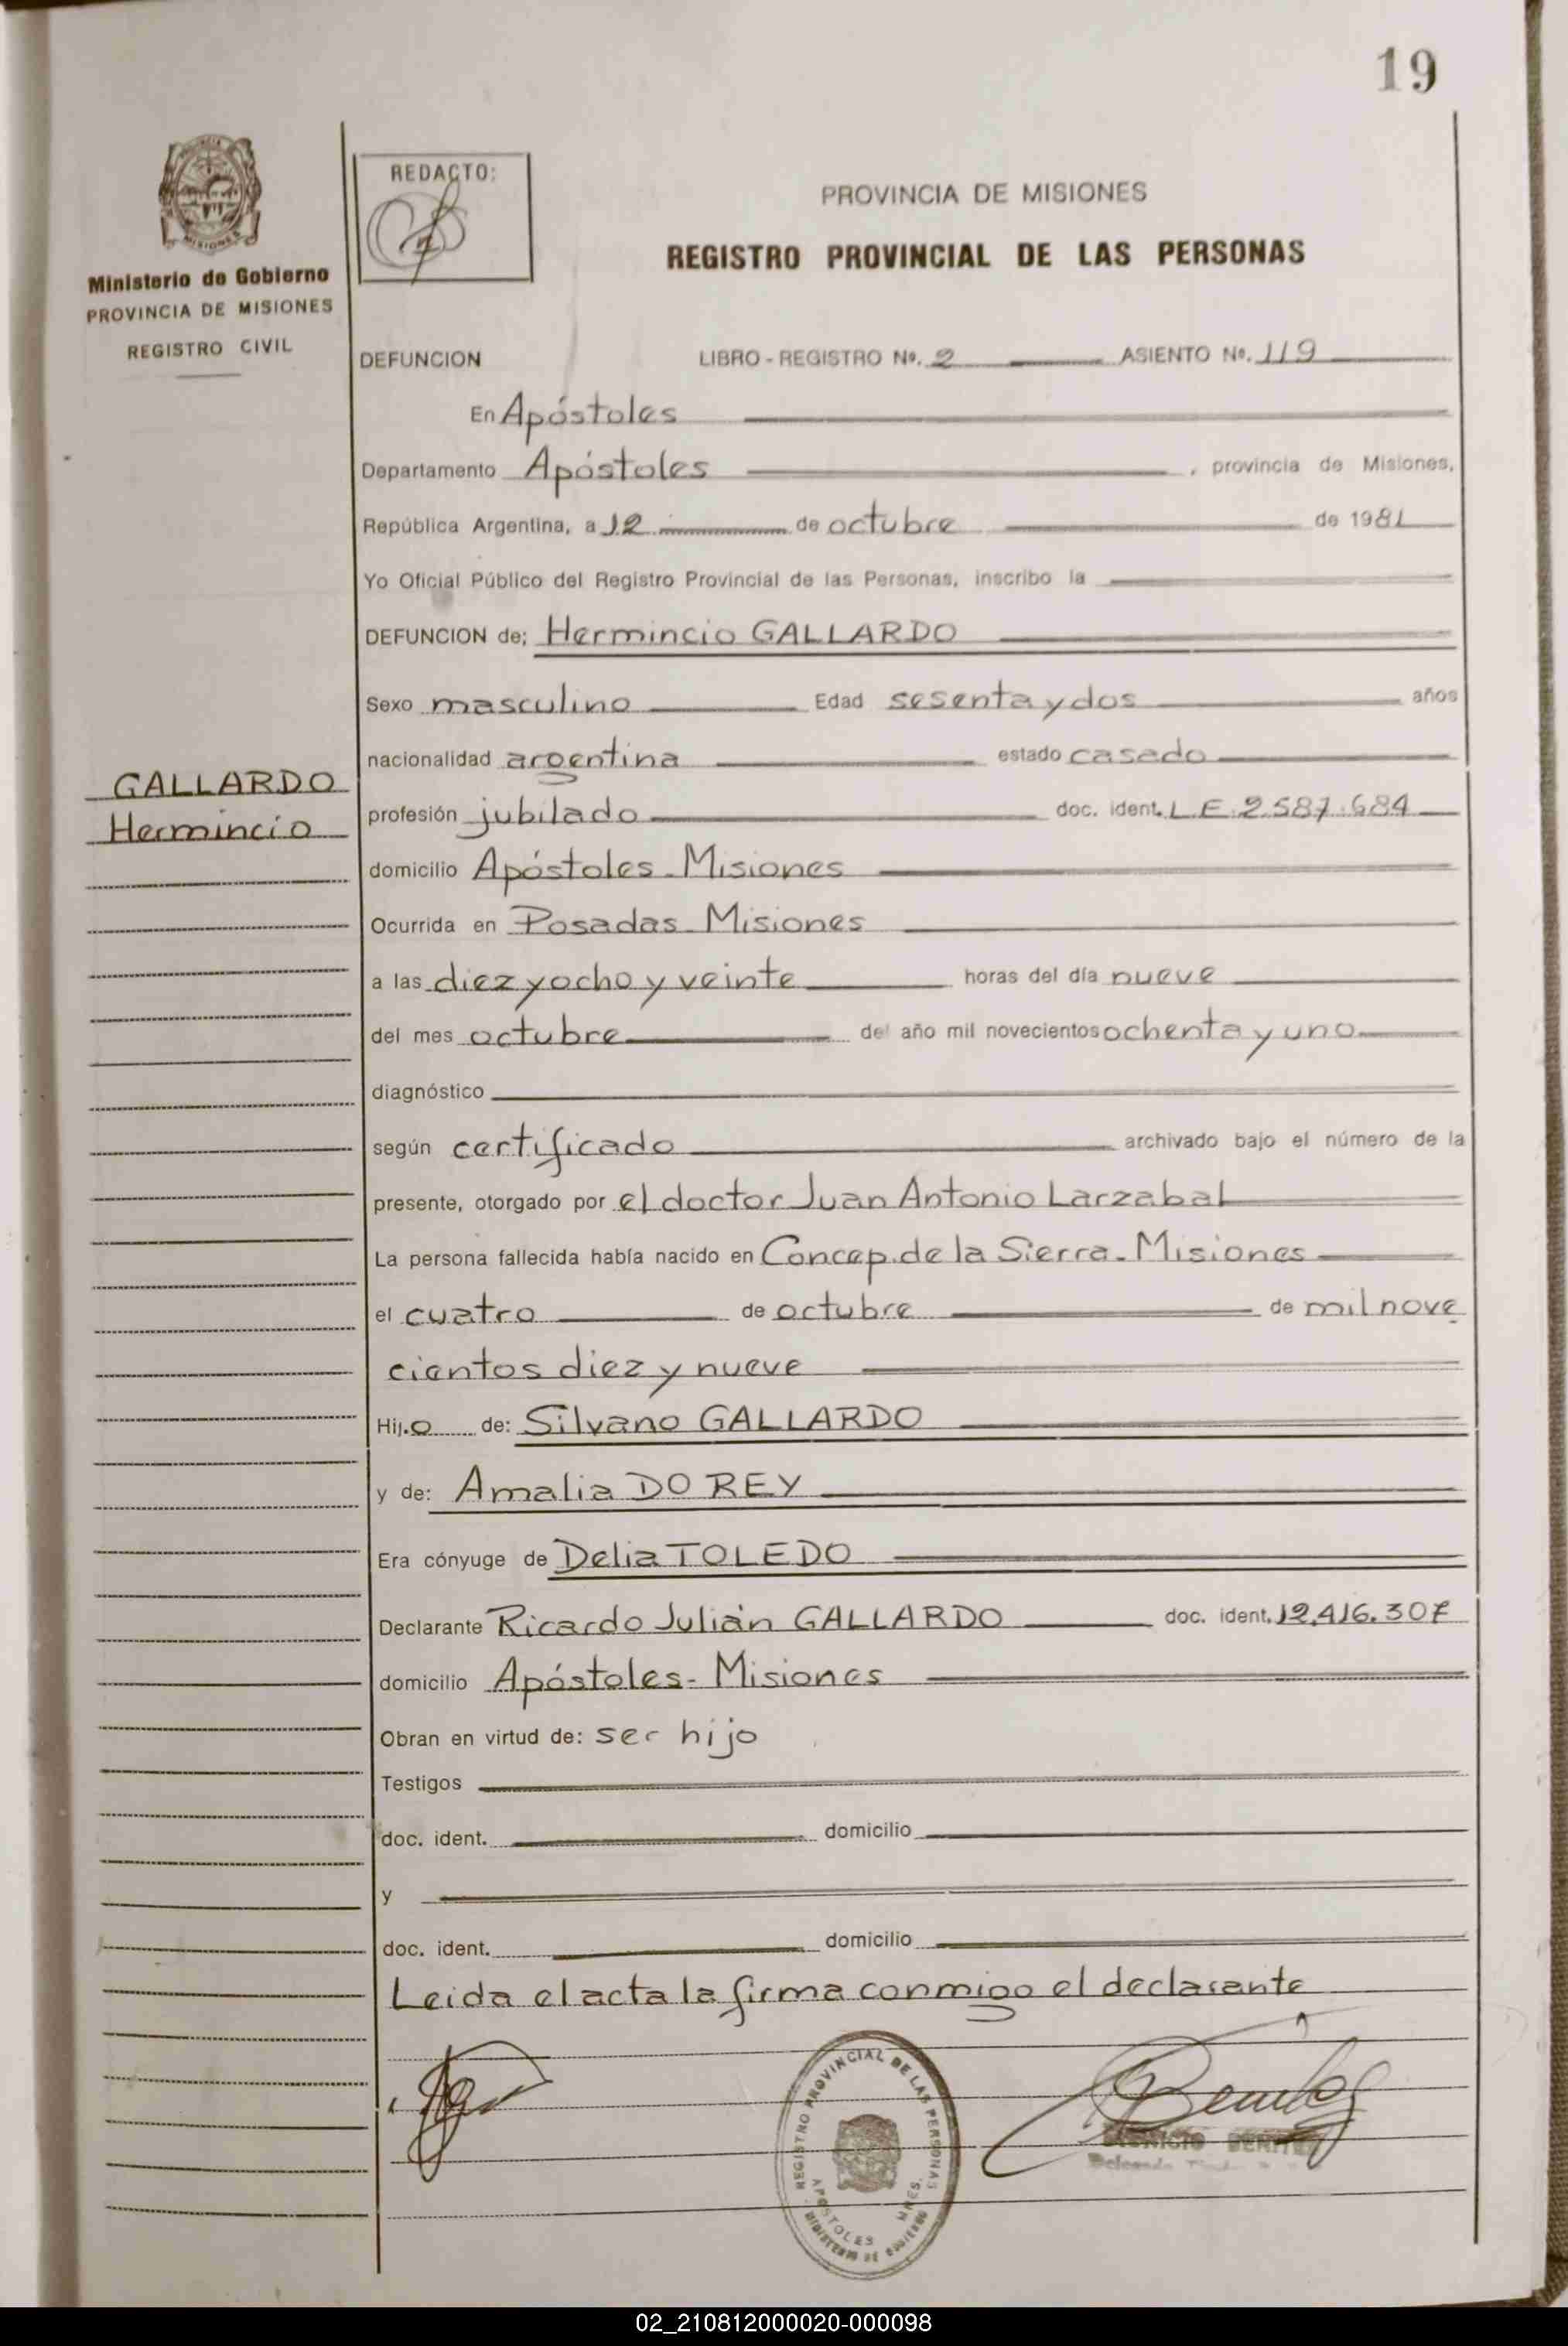 19
Ministerio de Gobierno
PROVINCIA DE MISIONES
REGISTRO CIVIL
REDACTO:
PROVINCIA DE MISIONES
REGISTRO PROVINCIAL DE LAS PERSONAS
DEFUNCION LIBRO - REGISTRO Nº. 2 ASIENTO Nº. 119
En Apóstoles
Departamento Apóstoles , provincia de Misiones,
República Argentina, a 12 de octubre de 1981
Yo Oficial Público del Registro Provincial de las Personas, inscribo la
DEFUNCION de; Hermincio GALLARDO
Sexo masculino Edad sesenta y dos años
nacionalidad argentina estado casado
GALLARDO
Hermincio
profesión jubilado doc. ident. L.E. 2.587.684
domicilio Apóstoles - Misiones
Ocurrida en Posadas Misiones
a las diez y ocho y veinte horas del día nueve
del mes octubre del año mil novecientos ochenta y uno
diagnóstico
según certificado archivado bajo el número de la
presente, otorgado por el doctor Juan Antonio Larzabal
La persona fallecida había nacido en Concep. de la Sierra - Misiones
el cuatro de octubre de mil nove
cientos diez y nueve
Hij.o de: Silvano GALLARDO
y de: Amalia DO REY
Era cónyuge de Delia TOLEDO
Declarante Ricardo Julián GALLARDO doc. ident. 12.416.307
domicilio Apóstoles - Misiones
Obran en virtud de: ser hijo
Testigos
doc. ident. domicilio
y
doc. ident. domicilio
Leida el acta la firma conmigo el declarante
REGISTRO PROVINCIAL DE LAS PERSONAS
APOSTOLES MNES.
MINISTERIO DE GOBIERNO
BENITEZ
02_210812000020-000098